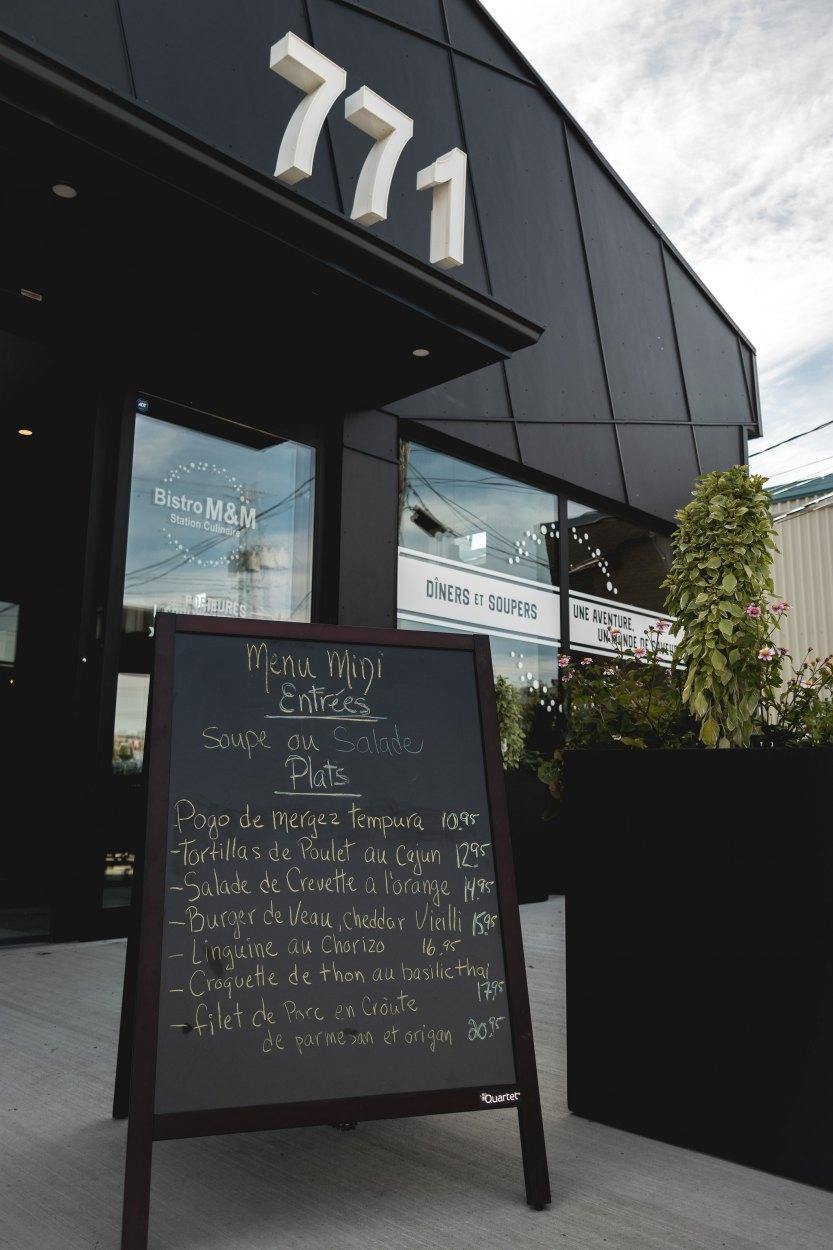 771
Bistro M&M
Station Culinaire
DÎNERS ET SOUPERS
UNE AVENTURE,
UN MONDE DE
Menu Mini
Entrées
Soupe ou Salade
Plats
Pogo de mergez tempura 10.95
-Tortillas de Poulet au Cajun 12.95
-Salade de Crevette a l'orange 14.95
-Burger de Veau, cheddar Vieilli 15.95
-Linguine au Chorizo 16.95
-Croquette de thon au basilic thai
17.95
-filet de Porc en Croûte
de parmesan et origan 20.95
Quartet